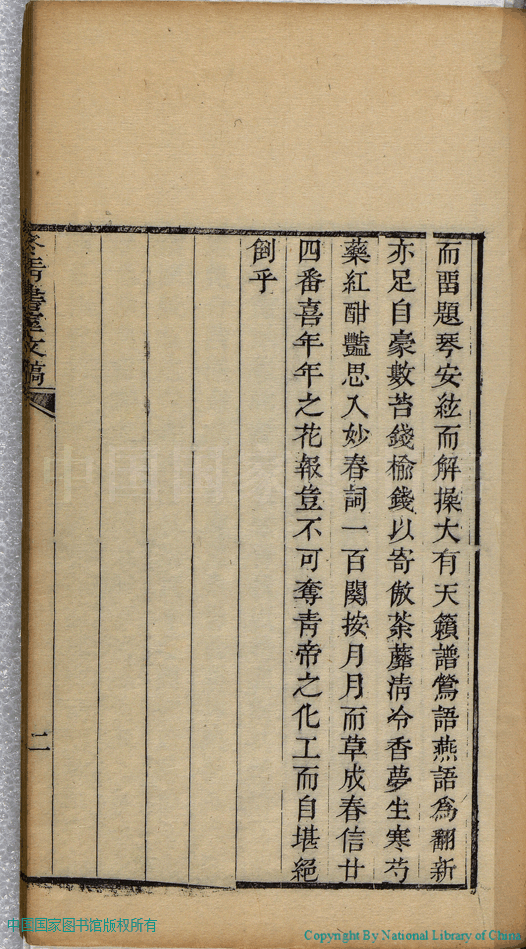 而留題琴安絃而解操大有天籟譜鶯語燕語爲翻新
亦足自豪數苔錢榆錢以寄傲荼蘼清冷香夢生寒芍
藥紅酣豔思入妙春詞一百闋按月月而草成春信廿
四番喜年年之花報豈不可奪青帝之化工而自堪絕
倒乎
書室文稿
二
中国国家图书馆版权所有
Copyright By National Library of China